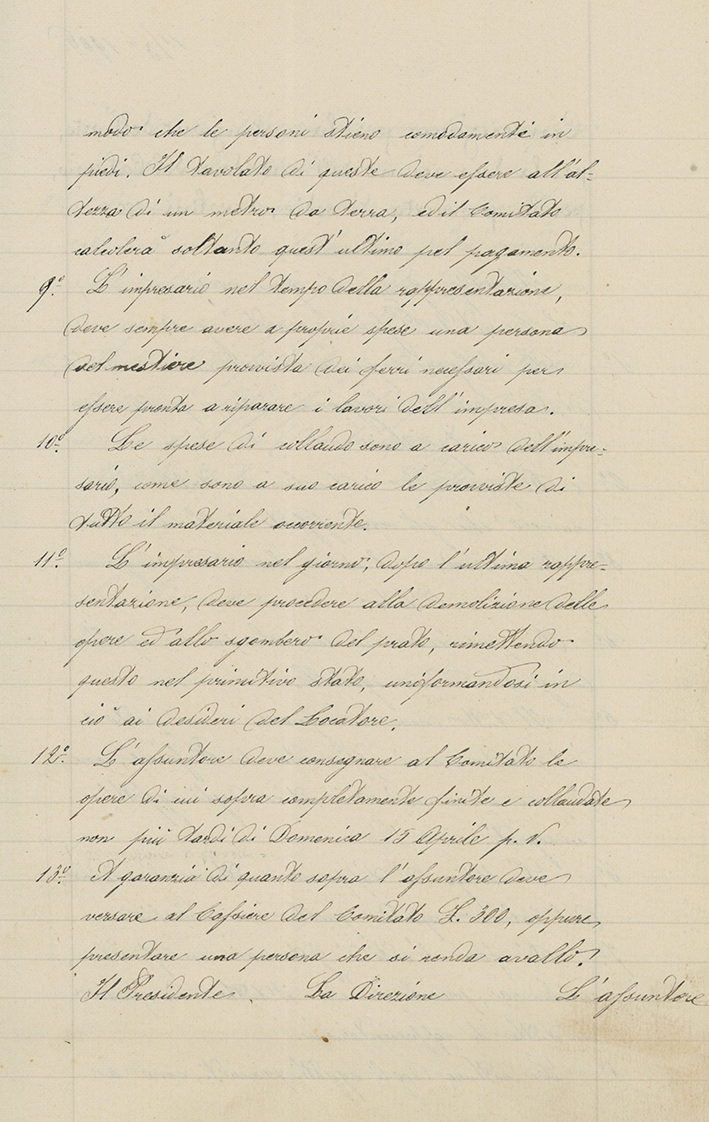 modo che le personi stieno comodamente in
piedi. Il tavolato di queste deve essere all'al-
tezza di un metro da terra, ed il Comitato
calcolerà soltanto quest'ultimo pel pagamento.
9º. L'impresario nel tempo della rappresentazione,
deve sempre avere a proprie spese una persona
del mestiere provvista dei ferri necessari per
essere pronta a riparare i lavori dell'impresa.
10º. Le spese di collaudo sono a carico dell'impre-
sario, come sono a suo carico le provviste di
tutto il materiale occorrente.
11º. L'impresario nel giorno, dopo l'ultima rappre-
sentazione, deve procedere alla demolizione delle
opere ed allo sgombero del prato, rimettendo
questo nel primitivo stato, uniformandosi in
ciò ai desideri del Locatore.
12º. L'assuntore deve consegnare al Comitato le
opere di cui sopra completamente finite e collaudate
non più tardi di Domenica 15 Aprile p. v.
13º. A garanzia di quanto sopra l'assuntore deve
versare al Cassiere del Comitato L. 300, oppure
presentare una persona che si renda avallo.
Il Presidente. La Direzione L'assuntore